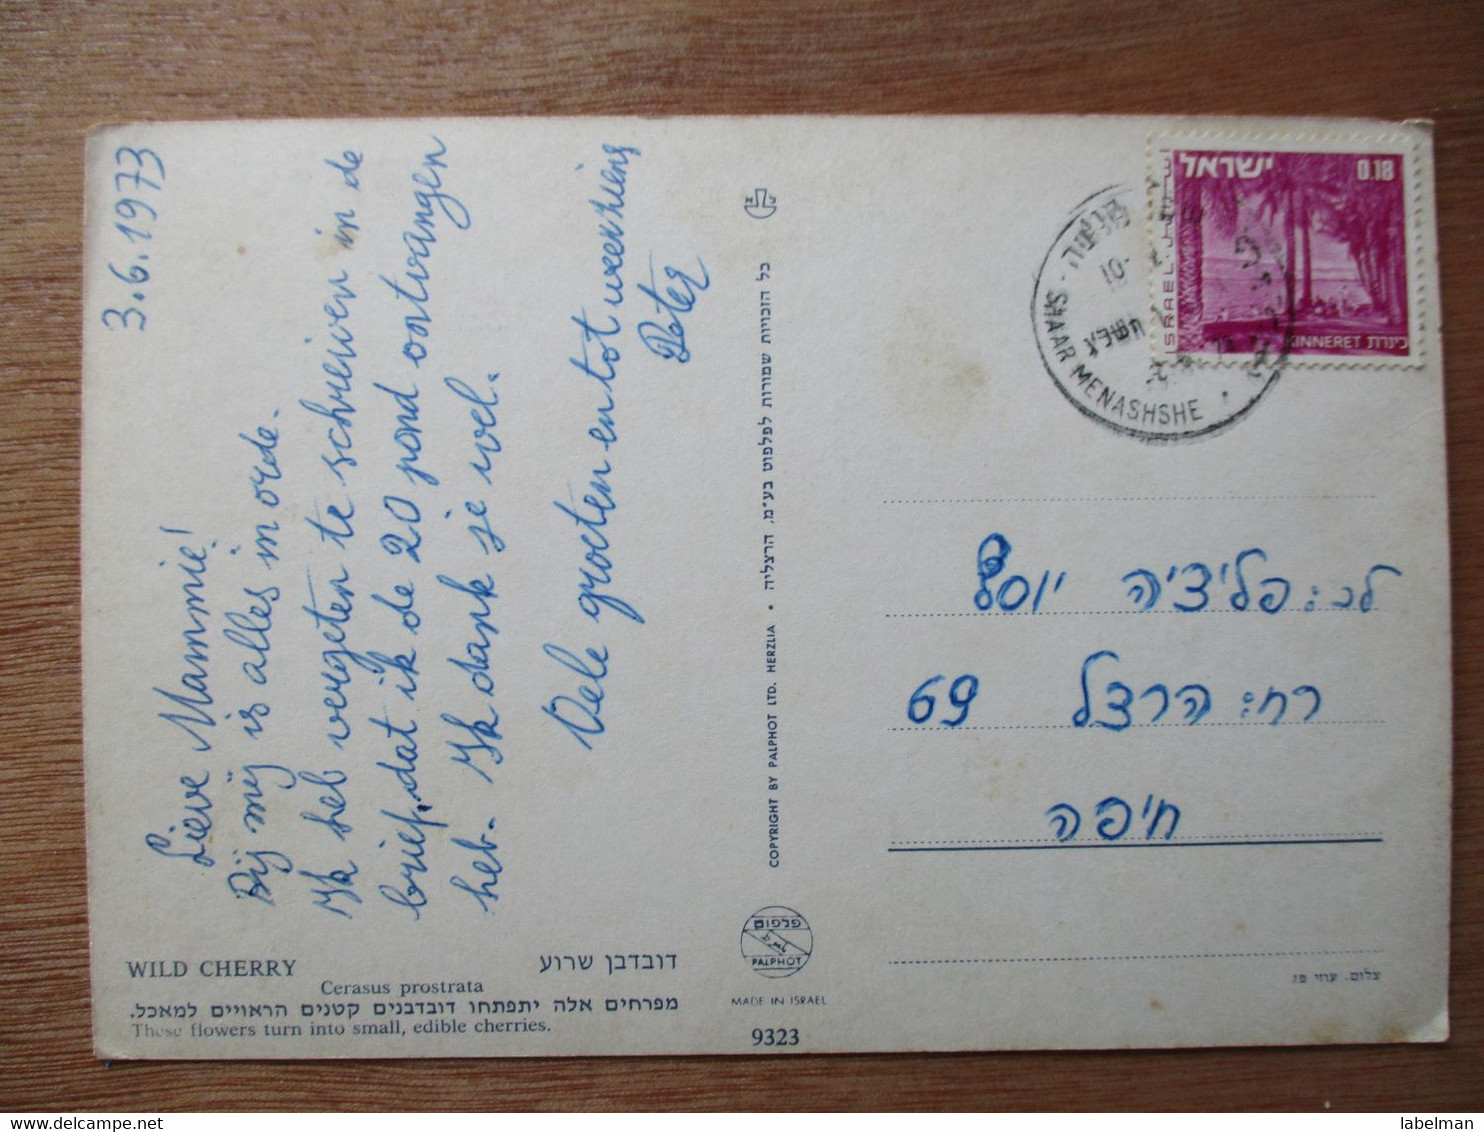 3.6.1973
Lieve Mammie!
Bij mij is alles in orde.
Ik heb vergeten te schreiven in de
brief, dat ik de 20 pond ontvangen
heb. Ik dank je wel.
Vele groeten en tot weerziens
Peter
WILD CHERRY
דובדבן שרוע
Cerasus prostrata
מפרחים אלה יתפתחו דובדבנים קטנים הראויים למאכל.
These flowers turn into small, edible cherries.
כל הזכויות שמורות לפלפוט בע"מ, הרצליה • COPYRIGHT BY PALPHOT LTD. HERZLIA
פלפוט
PALPHOT
MADE IN ISRAEL
9323
ישראל
0.18
ISRAEL
KINNERET כינרת
SHAAR MENASHSHE
לכ: פליציה יוסף
רח: הרצל 69
חיפה
צלום.
labelman